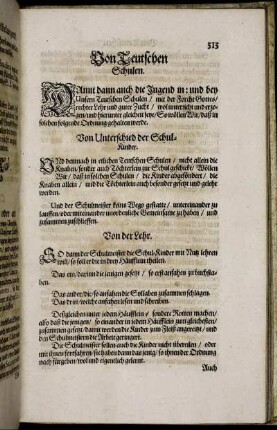 313
Von Teutschen
Schulen.
DAmit dann auch die Jugend in: und bey
Unsern Teutschen Schulen / mit der Forcht Gottes/
rechter Lehr und guter Zucht / wol unterricht und erzo-
gen / und hierunter gleichheit seye / So wöllen Wir / daß in
solchen folgende Ordnung gehalten werde.
Von Unterschied der Schul-
Kinder.
UNd demnach in etlichen Teutschen Schulen / nicht allein die
Knaben / sonder auch Töchterlein zur Schul geschickt / Wöllen
Wir / daß in solchen Schulen / die Kinder abgesöndert / die
Knaben allein / und die Töchterlein auch besonder gesetzt und gelehrt
werden.
Und der Schulmeister keins Wegs gestatte / untereinander zu
lauffen / oder miteinander unordenliche Gemeinsame zu haben / und
zusammen zuschlieffen.
Von der Lehr.
SO dann der Schulmeister die Schul-Kinder mit Nutz lehren
will / so soll er die in drey Häufflein theilen.
Das ein / darinn die jenigen gesetzt / so erst anfahen zu buchsta-
ben.
Das ander / die / so anfahen die Syllaben zusammen schlagen.
Das dritt / welche anfahen lesen und schreiben.
Deßgleichen unter jedem Häufflein / sondere Rotten machen/
also daß die jenigen / so einander in jedem Häufflein zum gleichesten/
zusammen gesetzt / damit werden die Kinder zum Fleiß angereitzt / und
den Schulmeistern die Arbeit geringert.
Die Schulmeister sollen auch die Kinder nicht übereilen / oder
mit ihnen fortfahren / sie haben dann das jenig / so ihnen der Ordnung
nach fürgeben / wol und eigentlich gelernt.
Auch